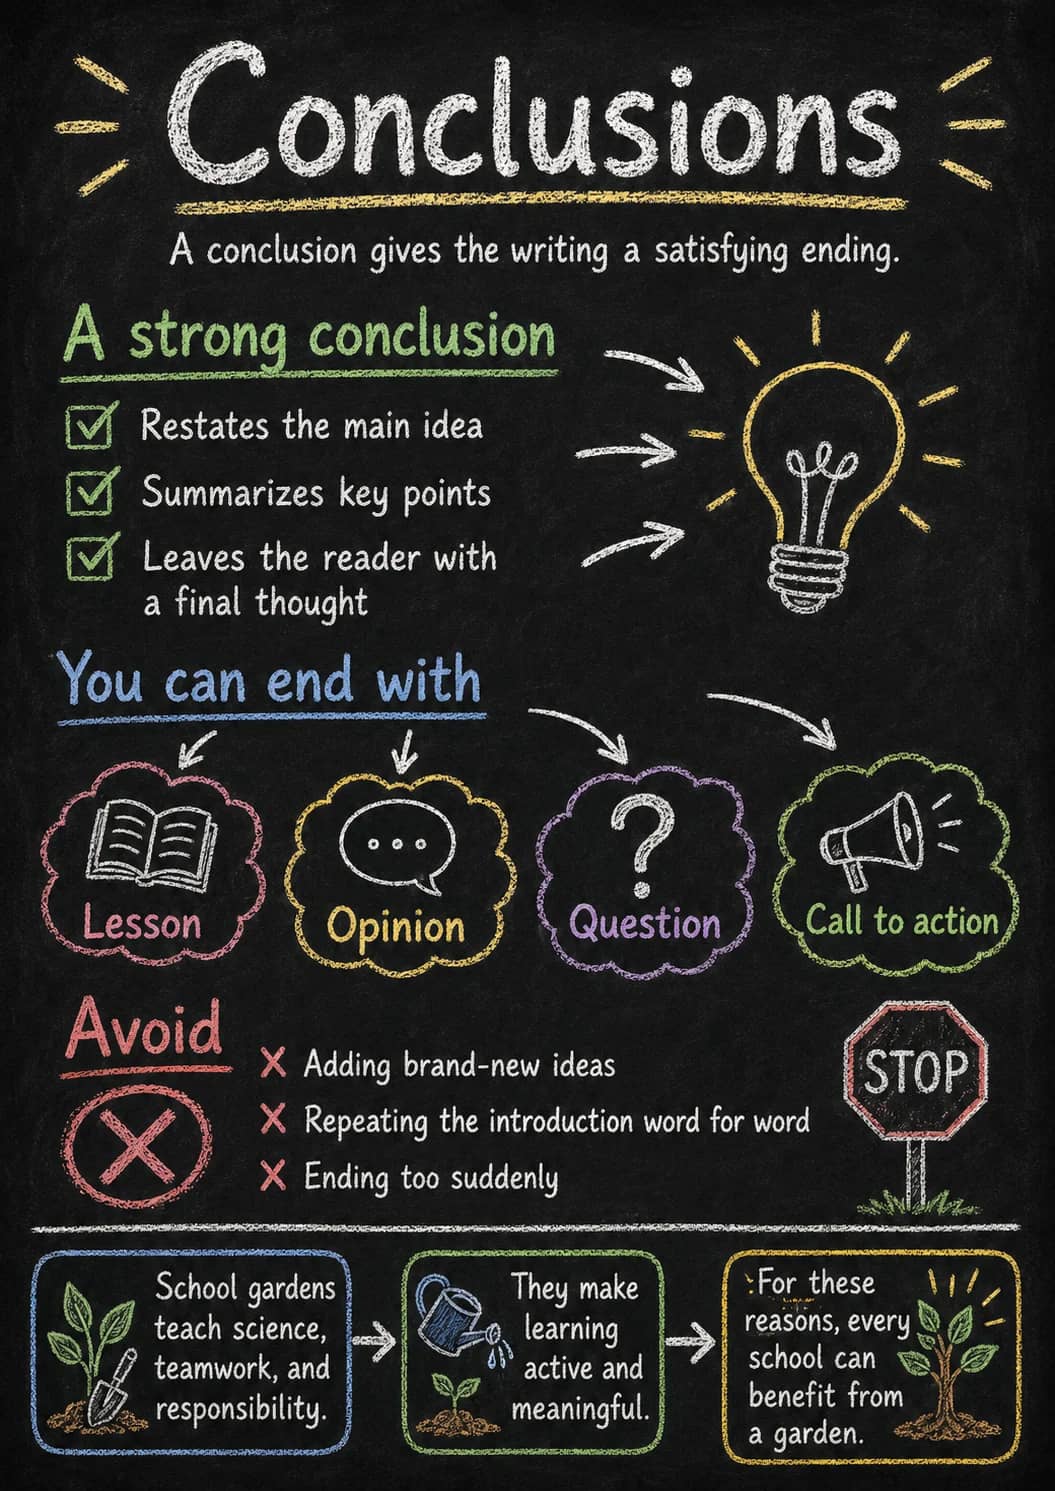 Conclusions
A conclusion gives the writing a satisfying ending.
A strong conclusion
Restates the main idea
Summarizes key points
Leaves the reader with
a final thought
You can end with
Lesson
Opinion
Question
Call to action
Avoid
Adding brand-new ideas
Repeating the introduction word for word
Ending too suddenly
STOP
School gardens
teach science,
teamwork, and
responsibility.
They make
learning
active and
meaningful.
For these
reasons, every
school can
benefit from
a garden.